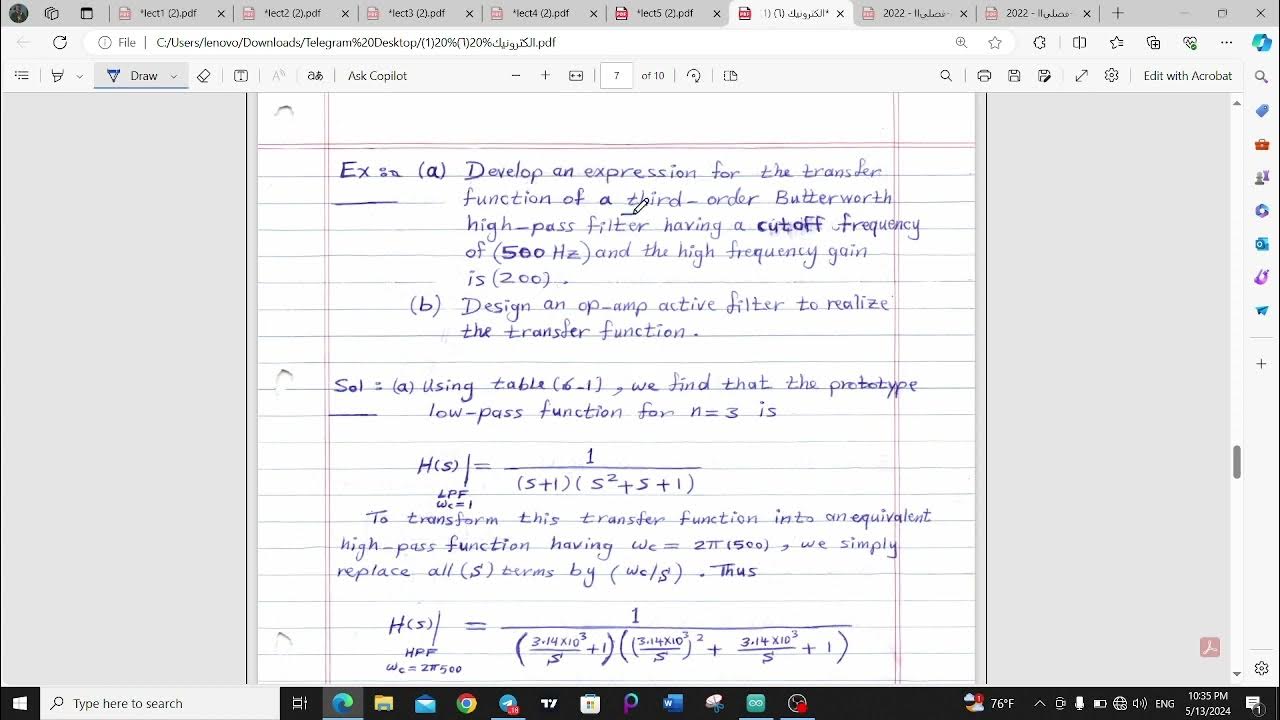 *lect1 (2).pdf
*lect2.(2).pdf
*lect3 (2).pdf
*lect4 (2).pdf
*lect5 (2).pdf
2022 -
2022 -
File
C:/Users/lenovo/Downloads/Telegram%20Desktop/(1)20%(6)20%الكترونيك.pdf
Draw
Ask Copilot
7 of 10
Edit with Acrobat
Ex :- (a) Develop an expression for the transfer
function of a third-order Butterworth
high-pass filter having a cutoff frequency
of (500 Hz) and the high frequency gain
is (200).
(b) Design an op-amp active filter to realize
the transfer function.
Sol: (a) Using table (6-1), we find that the prototype
low-pass function for n=3 is
H(s)| = 1 / (s+1)(s²+s+1)
LPF
ωc=1
To transform this transfer function into an equivalent
high-pass function having ωc = 2π(500), we simply
replace all (s) terms by (ωc/s). Thus
H(s)| = 1 / (3.14×10³/s + 1)((3.14×10³/s)² + 3.14×10³/s + 1)
HPF
ωc=2π500
Type here to search
76°F
ENG
10:35 PM
5/13/2024